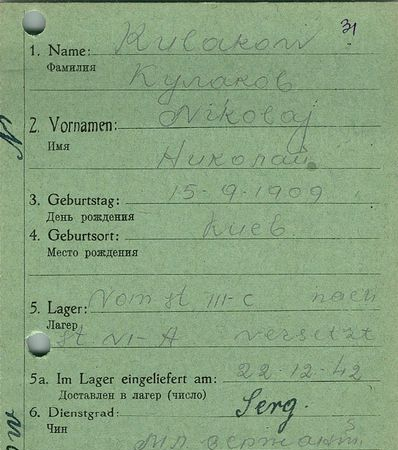 31
1. Name: Kulakow
Фамилия
Кулаков
2. Vornamen: Nikolaj
Имя
Николай
3. Geburtstag: 15-9-1909
День рождения
4. Geburtsort: Киев
Место рождения
5. Lager: Vom st III-c nach
Лагер
st. VI-A versetzt
5a. Im Lager eingeliefert am: 22-12-42
Доставлен в лагер (число)
6. Dienstgrad: Serg.
Чин
Мл. сержант